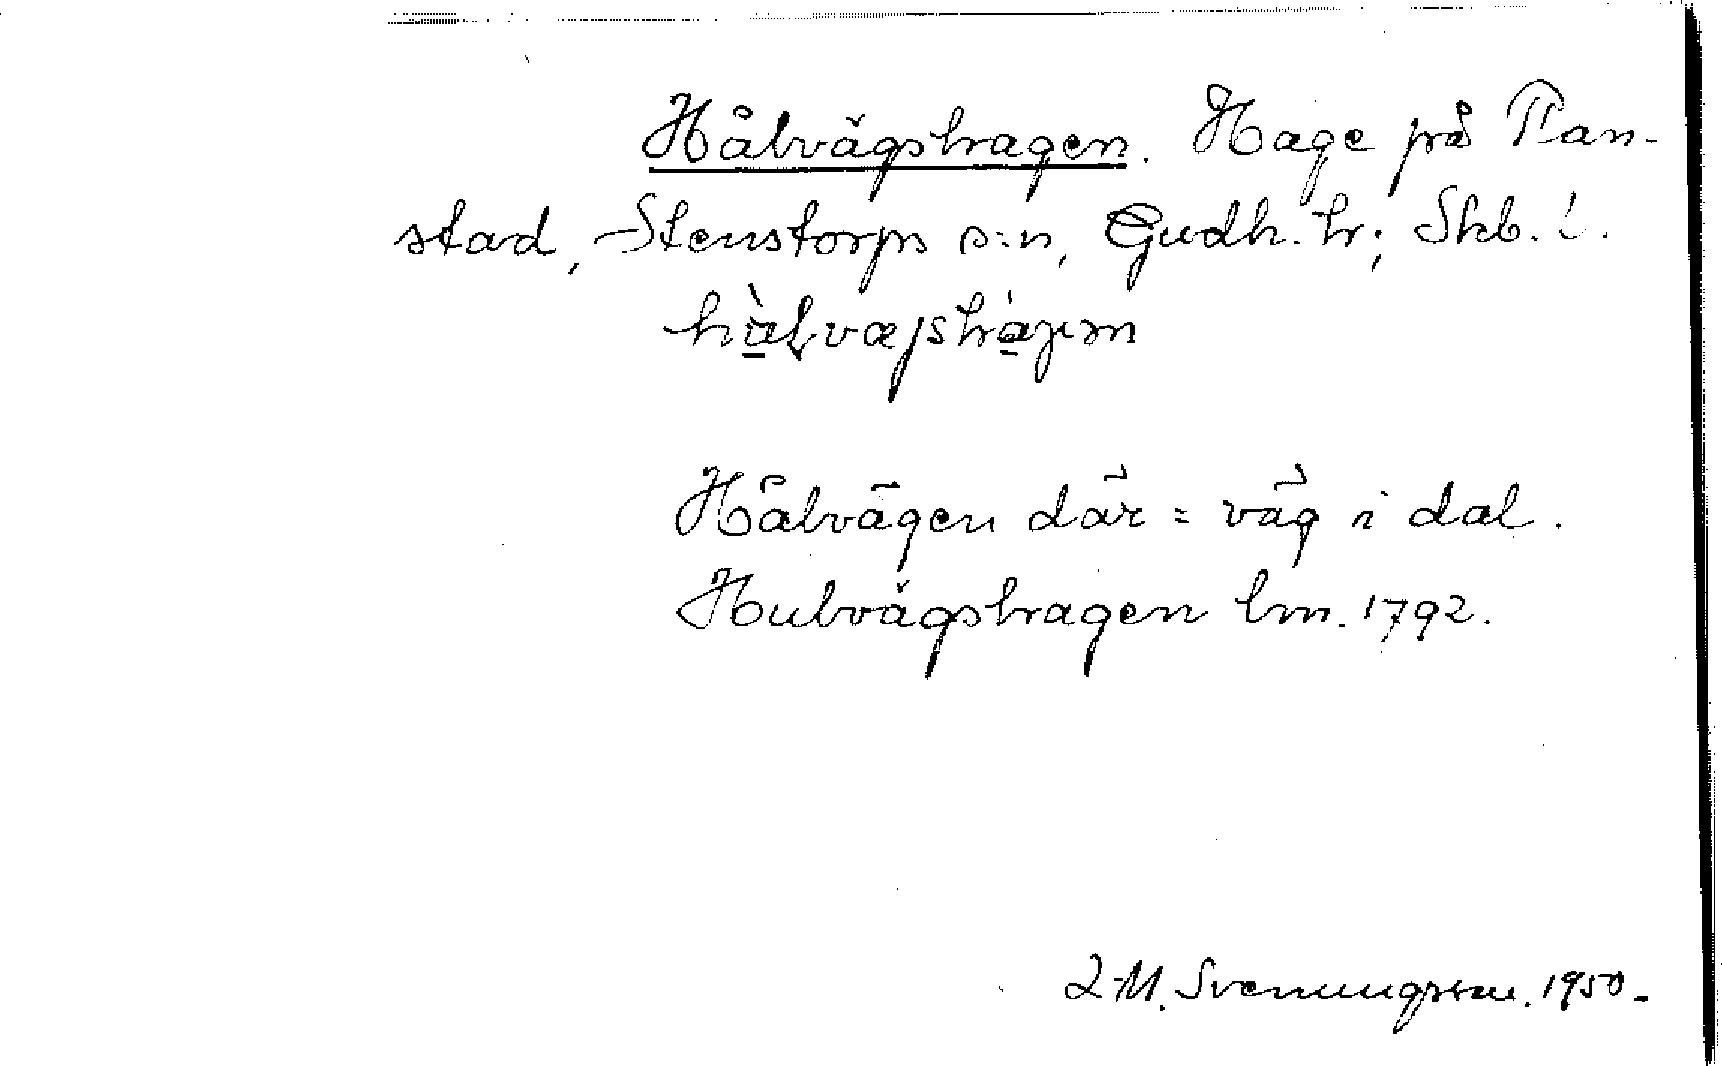 Hålvägshagen. Hage på Tlan-
stad, Stenstorps s:n, Gudh. hr; Skb. l.
hàlvæjshàgen
Hålvägen där = väg i dal.
Hulvägshagen lm. 1792.
L M. Svenungsson. 1950.